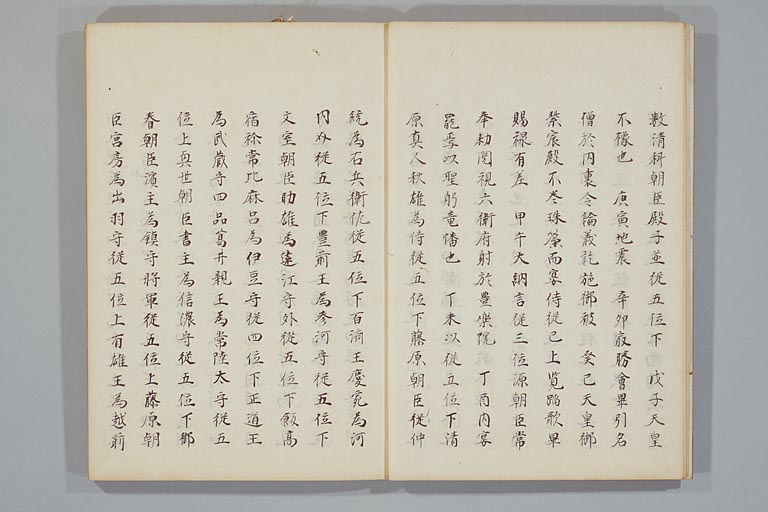 数清科朝臣殿子並従五位下 戊子天皇
不豫也 庚寅地震 辛卯最勝會畢引名
僧於内裏令論義訖施御被 癸巳天皇御
紫宸殿不巻珠簾而宴侍従已上覧踏歌畢
賜禄有差 甲午大納言従三位源朝臣常
奉勅閲視六衛府射於豊樂院 丁酉内宴
罷焉以聖躬竜憣也 丁未以従五位下清
原真人秋雄為侍従五位下藤原朝臣従仲
統為右兵衛佐従五位下百済王慶苑為河
内介従五位下豊前王為参河守従五位下
文室朝臣助雄為遠江守外従五位下飯高
宿祢常比麻呂為伊豆守従四位下正道王
為武蔵守四品葛井親王為常陸太守従五
位上真世朝臣書主為信濃守従五位下御
春朝臣濱主為鎮守将軍従五位上藤原朝
臣宮房為出羽守従五位上有雄王為越前